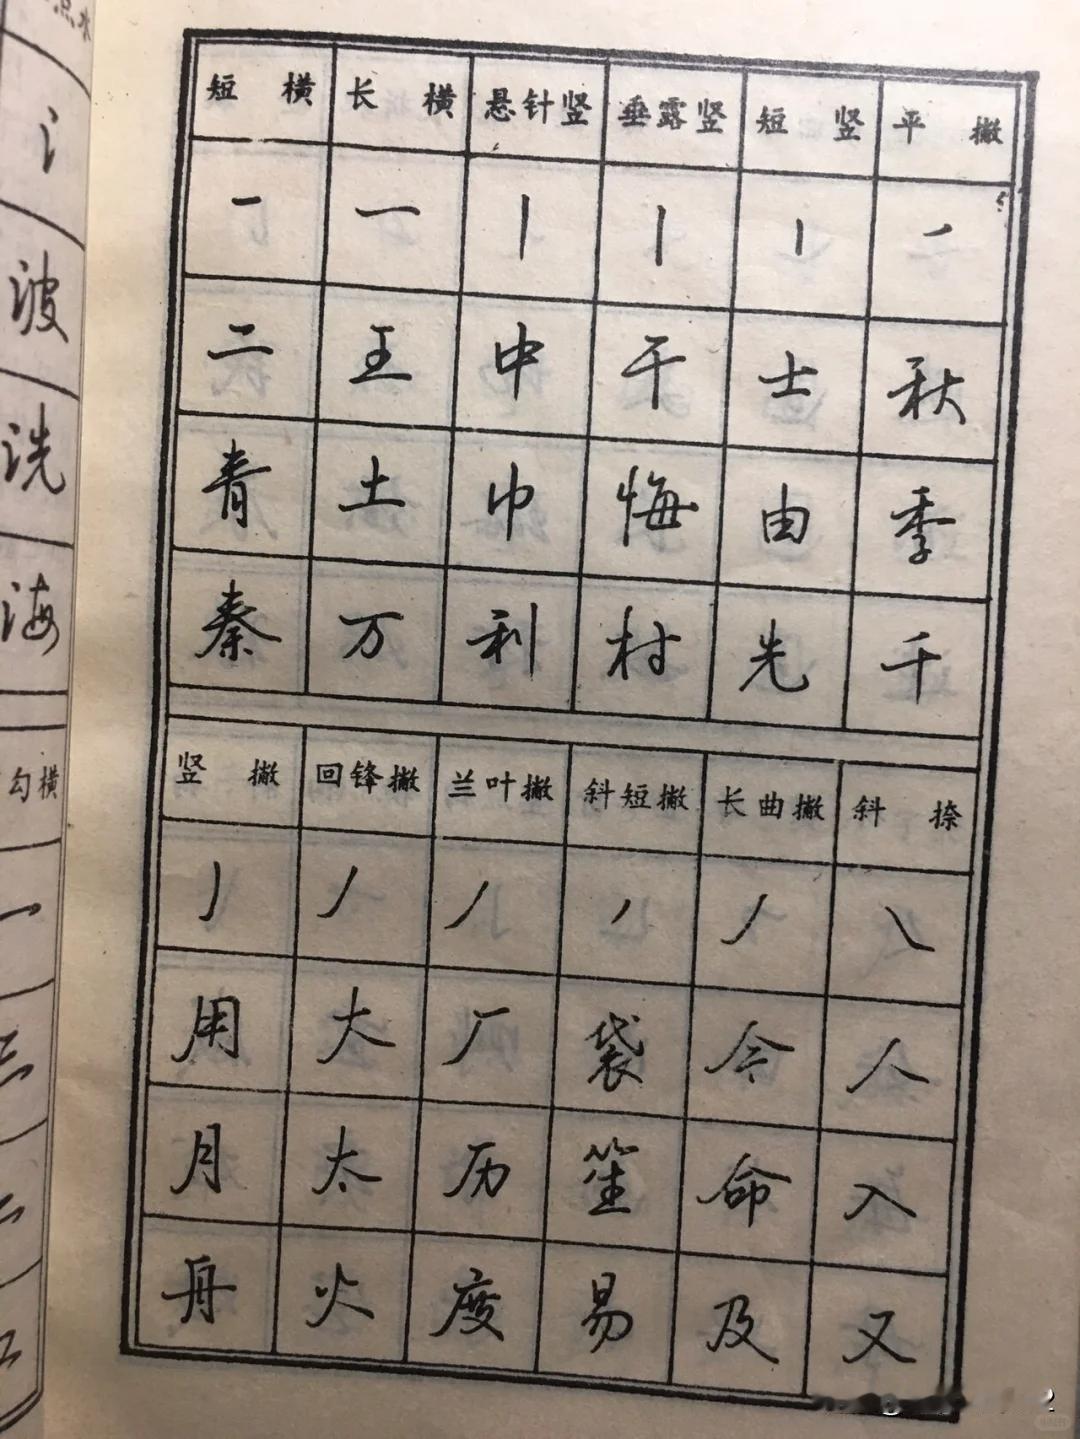 短横 长横 悬针竖 垂露竖 短竖 平撇
一 一 丨 丨 丨 ㇒
二 王 中 干 士 秋
青 土 巾 悔 由 季
秦 万 利 村 先 千
竖撇 回锋撇 兰叶撇 斜短撇 长曲撇 斜捺
丿 丿 丿 丿 丿 ㇏
用 大 厂 袋 令 人
月 太 历 笙 命 入
舟 火 度 易 及 又
点水
氵
波
洗
海
勾横